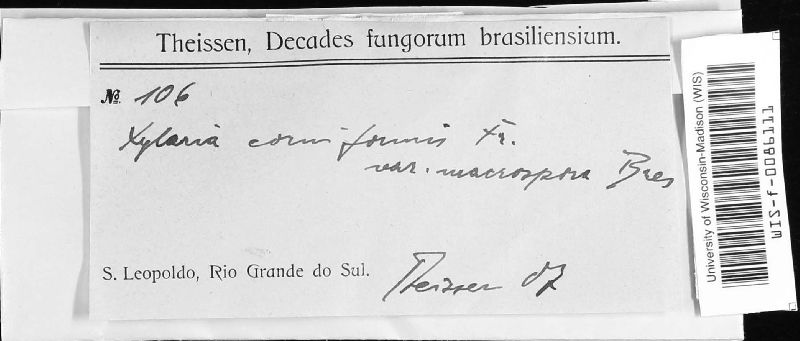 Theissen, Decades fungorum brasiliensium.
№ 106
Xylaria corniformis Fr.
var. macrospora Bres
S. Leopoldo, Rio Grande do Sul.
Theissen 07
University of Wisconsin-Madison (WIS)
WIS-f-0086111